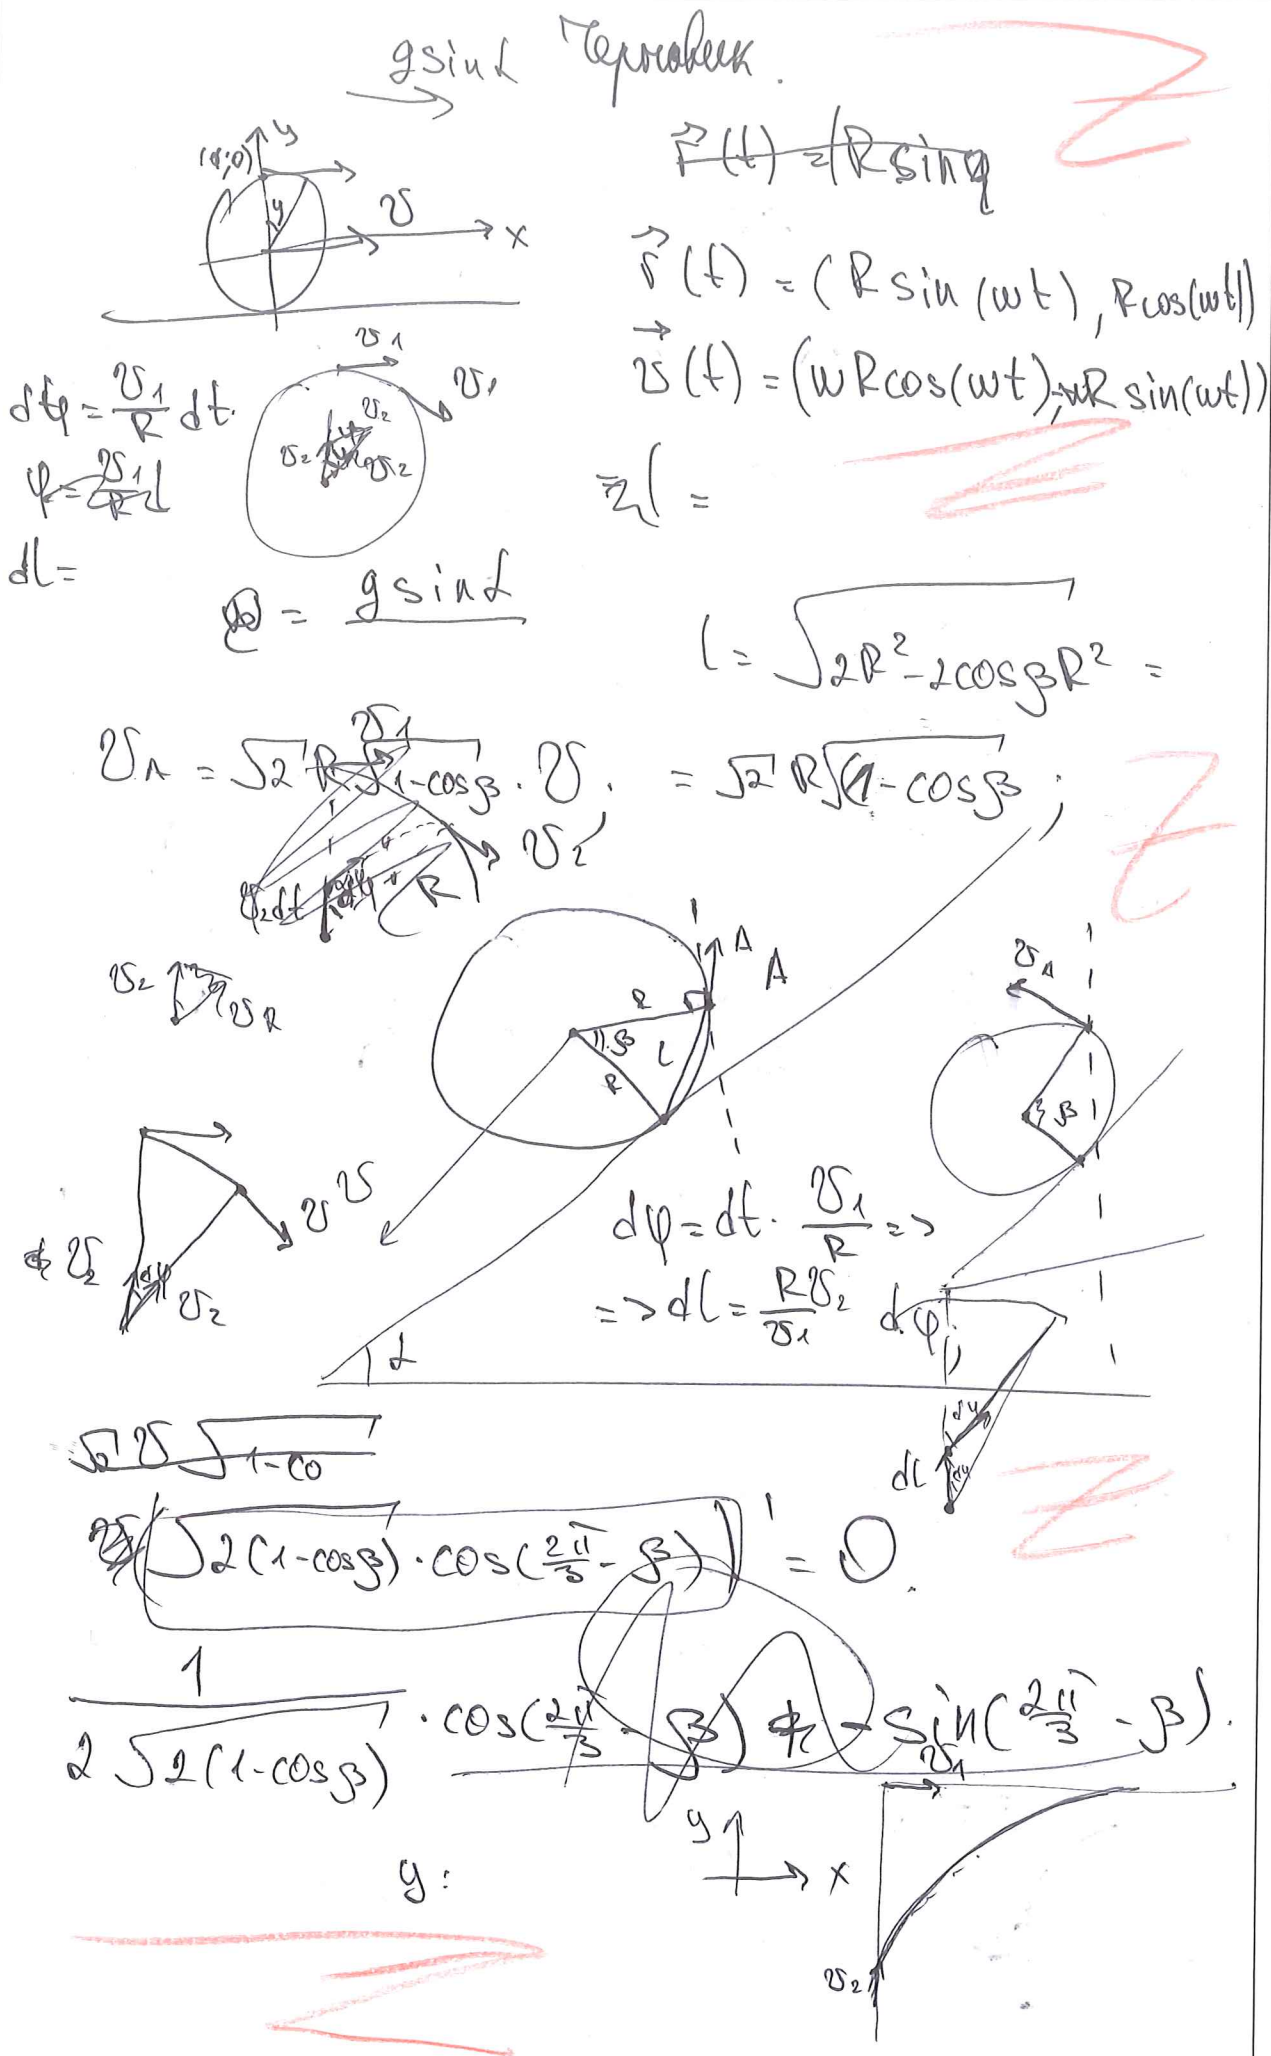 g sin α Черновик.
y
(0;0)
r⃗(t) = (R sin φ
φ
v
x
r⃗(t) = (R sin(ωt), R cos(ωt))
v⃗(t) = (ωR cos(ωt); -ωR sin(ωt))
v₁
v₁
dφ = v₁/R dt.
v₂
v₂
v₂
φ = v₁/R
l =
dl =
g sin α
=
l = √(2R² - 2cosβR²) =
v₁
v_A = √2 R √(1-cosβ) · v.
= √2 R √(1-cosβ) ;
v₂'
v₂dt
dφ
R
v₂
v_R
A
A
R
β
l
R
v_A
β
v
v
v₂
dφ
v₂
α
dφ = dt · v₁/R =>
=> dl = Rv₂/v₁ dφ
dφ
dl
dφ
√2 v √(1-co
(√(2(1-cosβ)) · cos(2π/3 - β))' = 0.
1/(2√(2(1-cosβ))) · cos(2π/3 - β) - sin(2π/3 - β).
v₁
y
x
y:
v₂